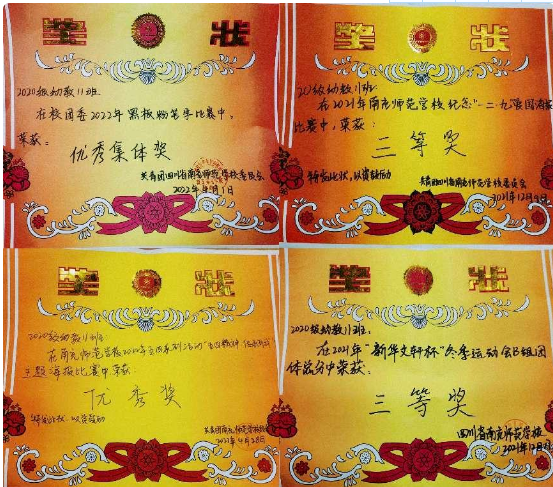 奖 状
2020级幼教11班:
在校团委2022年黑板粉笔字比赛中,
荣获:
优秀集体奖
共青团四川省南充师范学校委员会
2022年 月1日
奖 状
20级幼教11班:
在2021年南充师范学校纪念"一二·九"
比赛中,荣获:
三等奖
特发此状,以资鼓励
共青团四川省南充师范学校委员会
2021年12月9日
奖 状
2020级幼教11班:
在南充师范学校2022年 系列活动
主题海报比赛中荣获
优秀奖
特发此状,以资鼓励
共青团南充师范学校
2022年4月28日
奖 状
2020级幼教11班:
在2021年"新华文轩杯"冬季运动会B组团
体总分中荣获:
三等奖
四川省南充师范学校
2021年12月